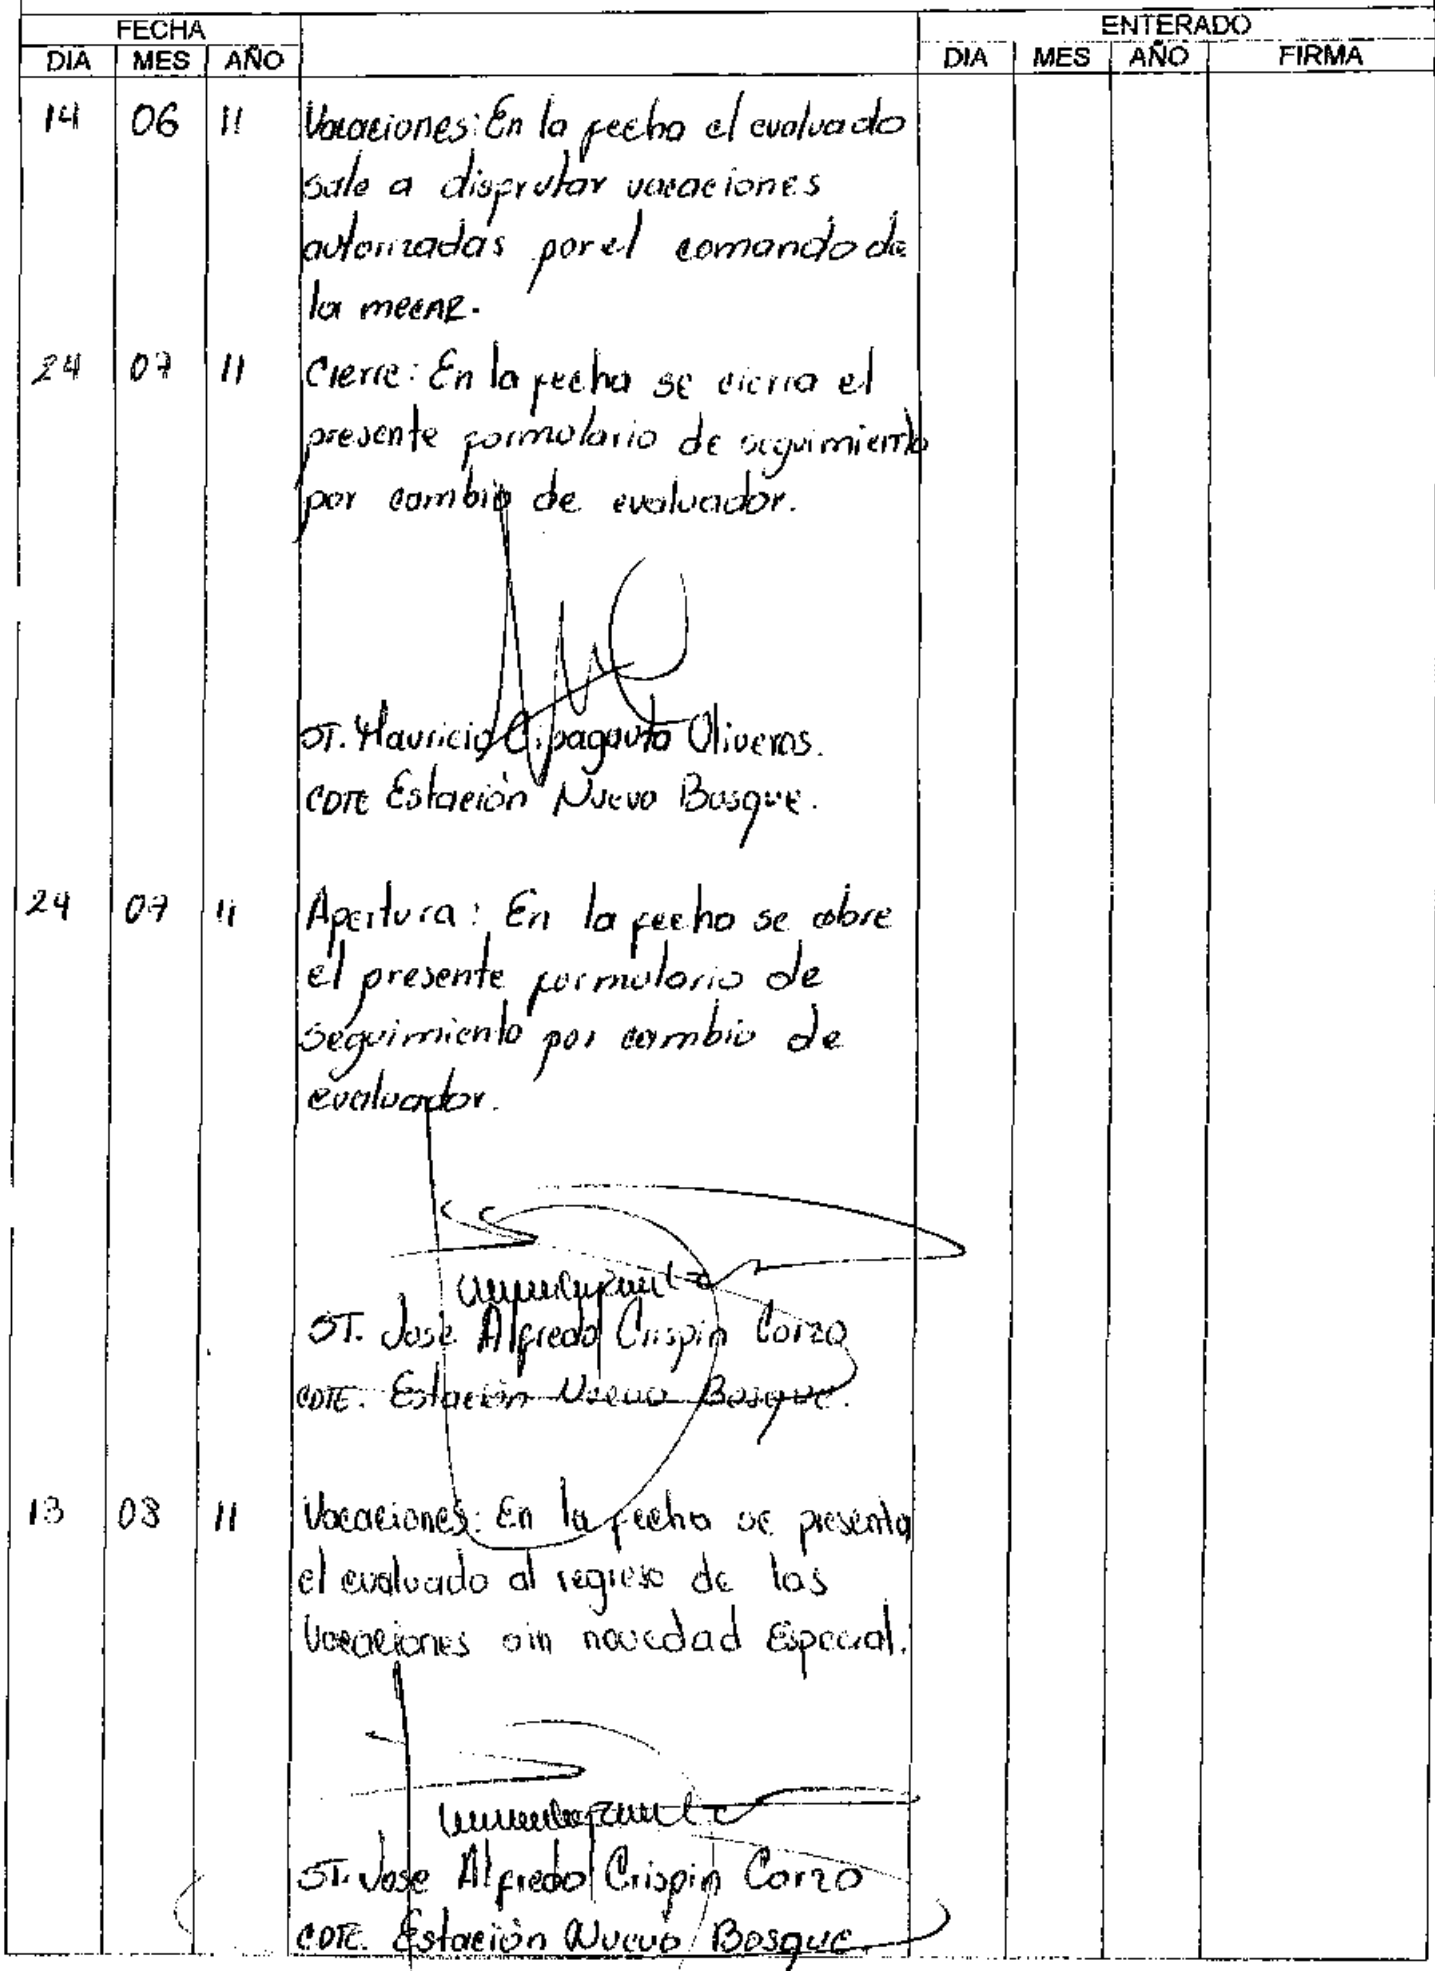 FECHA ENTERADO
DIA MES AÑO DIA MES AÑO FIRMA
14 06 11 Vacaciones: En la fecha el evaluado
sale a disfrutar vacaciones
autorizadas por el comando de
la mecar.
24 07 11 Cierre: En la fecha se cierra el
presente formulario de seguimiento
por cambio de evaluador.
ST. Mauricio Cipagauta Oliveros.
CDTE Estación Nuevo Bosque.
24 07 11 Apertura: En la fecha se abre
el presente formulario de
seguimiento por cambio de
evaluador.
ST. Jose Alfredo Crispin Corzo
CDTE. Estación Nuevo Bosque.
13 08 11 Vacaciones: En la fecha se presenta
el evaluado al regreso de las
Vacaciones sin novedad Especial.
ST. Jose Alfredo Crispin Corzo
CDTE. Estación Nuevo Bosque.